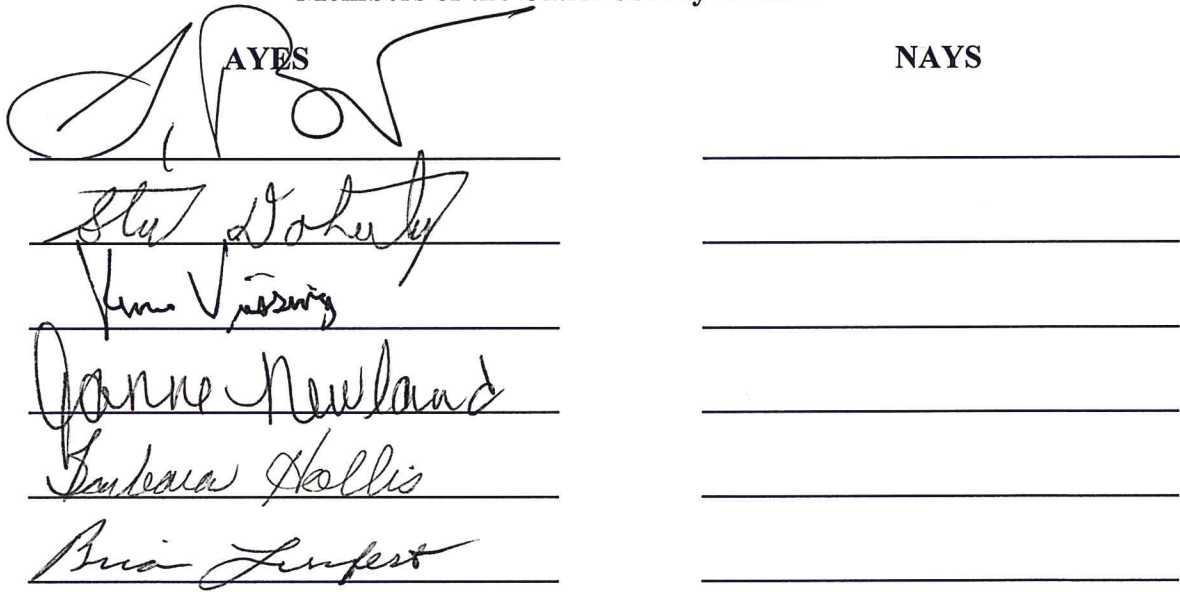 AYES NAYS
Doherty
Vissing
Janne Newland
Barbara Hollis
Brian Lenfest